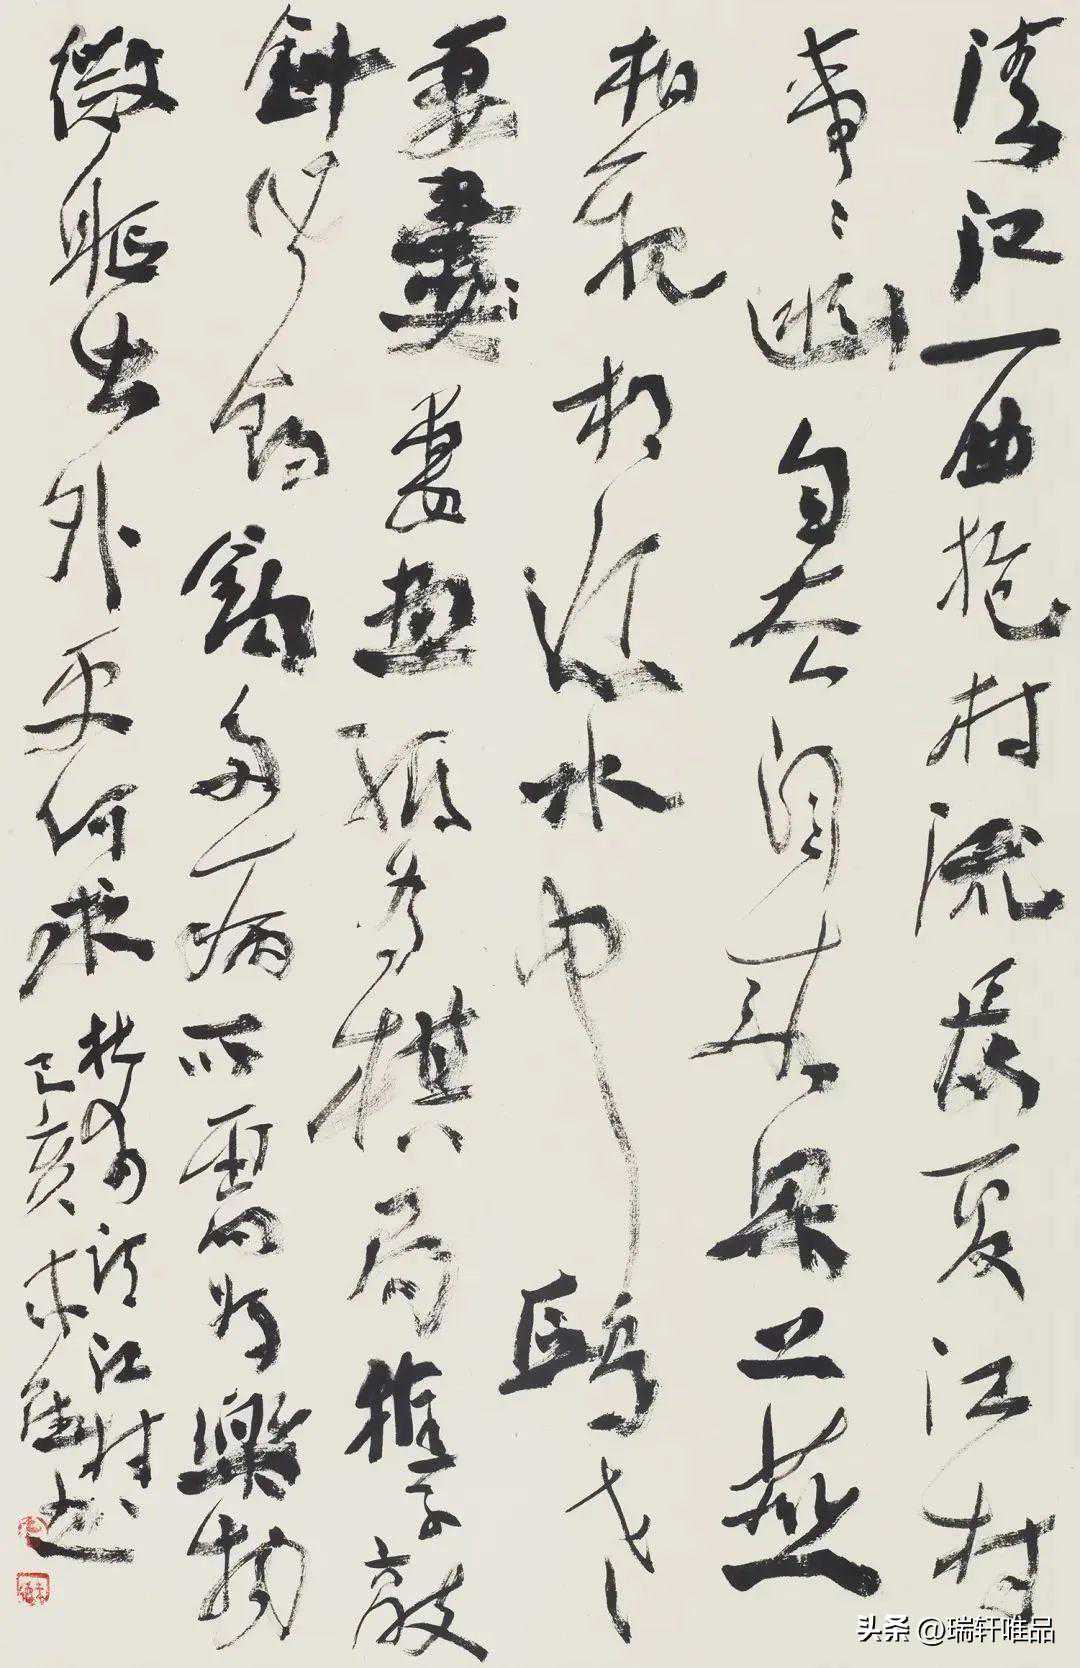 清江一曲抱村流長夏江村
事〻幽自去自来梁上燕
相親相近水中鷗老
妻畫妻畫紙為棋局稚子敲
針作釣鈎多病所需唯樂物
微軀此外更何求杜甫詩江村
己亥 書
头条 @瑞轩唯品